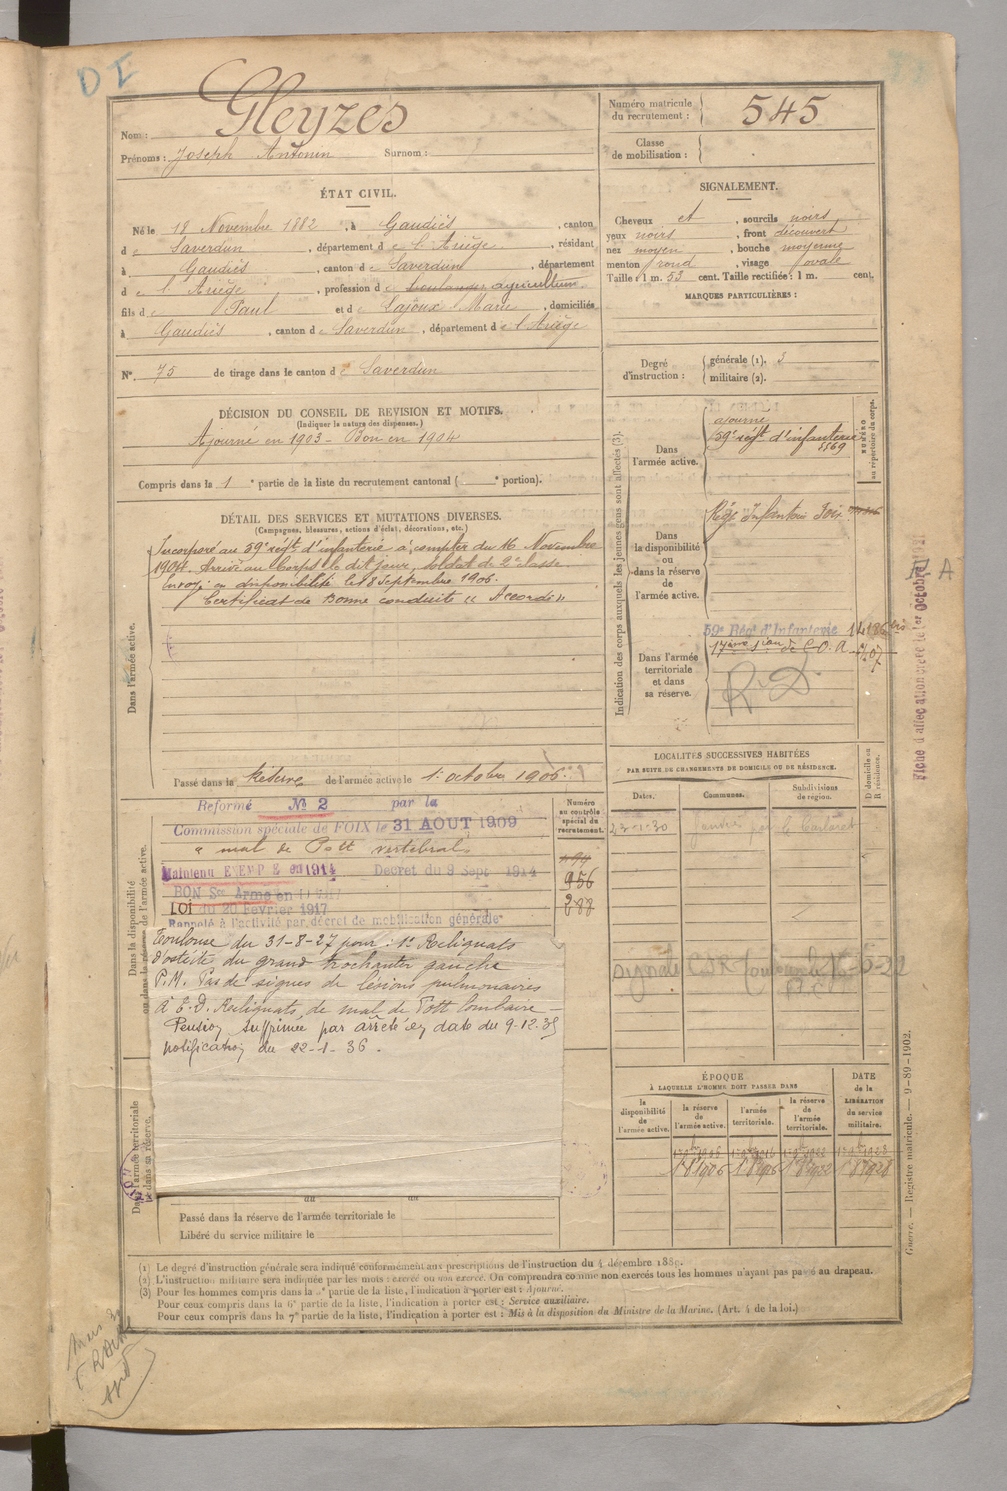 DI
Nom : Gleyzes
Prénoms : Joseph Antonin Surnom :
Numéro matricule du recrutement : 545
Classe de mobilisation :
ÉTAT CIVIL.
Né le 18 Novembre 1882, à Gaudiès, canton
de Saverdun, département de l'Ariège, résidant
à Gaudiès, canton de Saverdun, département
de l'Ariège, profession de boulanger agriculteur
fils de Paul et de Lajoux Marie, domiciliés
à Gaudiès, canton de Saverdun, département de l'Ariège
N° 75 de tirage dans le canton de Saverdun
SIGNALEMENT.
Cheveux et, sourcils noirs
yeux noirs, front découvert
nez moyen, bouche moyenne
menton rond, visage ovale
Taille : 1 m. 53 cent. Taille rectifiée : 1 m. cent.
MARQUES PARTICULIÈRES :
Degré d'instruction : générale (1). 3
militaire (2).
DÉCISION DU CONSEIL DE REVISION ET MOTIFS.
(Indiquer la nature des dispenses.)
Ajourné en 1903 - Bon en 1904
Compris dans la 1e partie de la liste du recrutement cantonal ( e portion).
DÉTAIL DES SERVICES ET MUTATIONS DIVERSES.
(Campagnes, blessures, actions d'éclat, décorations, etc.)
Dans l'armée active.
Incorporé au 59e régt d'infanterie à compter du 16 Novembre
1904. Arrivé au Corps le dit jour, soldat de 2e classe.
Envoyé en disponibilité le 18 Septembre 1906.
Certificat de Bonne conduite "Accordé"
Passé dans la Réserve de l'armée active le 1er octobre 1906.
Indication des corps auxquels les jeunes gens sont affectés (3).
NUMÉRO au répertoire du corps.
Dans l'armée active.
ajourné
59e régt d'infanterie
5569
Dans la disponibilité ou dans la réserve de l'armée active.
Régt Infanterie Foix
Dans l'armée territoriale et dans sa réserve.
59e Régt d'Infanterie
17ème Son de C.O.A
R.D.
Fiche d'affectation créée le 1er octobre 1921
A
LOCALITÉS SUCCESSIVES HABITÉES
PAR SUITE DE CHANGEMENTS DE DOMICILE OU DE RÉSIDENCE.
Dates. Communes. Subdivisions de région. D domicile ou R résidence.
23-1-30
Dans la disponibilité ou dans la réserve de l'armée active.
Numéro au contrôle spécial du recrutement.
Réformé N° 2 par la
Commission spéciale de FOIX le 31 AOUT 1909
mal de Pott vertébral
Maintenu EXEMPTÉ en 1914 Décret du 9 Sept 1914
BON Sce Armé en
LOI du 20 Février 1917
Rappelé à l'activité par décret de mobilisation générale
956
288
Toulouse du 31-8-27 pour : 1° Reliquats
d'ostéite du grand trochanter gauche
P.M. Pas de signes de lésions pulmonaires
à E.D. Reliquats de mal de Pott lombaire -
Pension supprimée par arrêté en date du 9-12-35
notification du 22-1-36.
Dans l'armée territoriale et dans sa réserve.
Passé dans la réserve de l'armée territoriale le
Libéré du service militaire le
ÉPOQUE
À LAQUELLE L'HOMME DOIT PASSER DANS
la disponibilité de l'armée active. la réserve de l'armée active. l'armée territoriale. la réserve de l'armée territoriale.
DATE de la LIBÉRATION du service militaire.
(1) Le degré d'instruction générale sera indiqué conformément aux prescriptions de l'instruction du 4 décembre 1889.
(2) L'instruction militaire sera indiquée par les mots : exercé ou non exercé. On comprendra comme non exercés tous les hommes n'ayant pas passé au drapeau.
(3) Pour les hommes compris dans la 2e partie de la liste, l'indication à porter est : Ajourné.
Pour ceux compris dans la 6e partie de la liste, l'indication à porter est : Service auxiliaire.
Pour ceux compris dans la 7e partie de la liste, l'indication à porter est : Mis à la disposition du Ministre de la Marine. (Art. 4 de la loi.)
Guerre. — Registre matricule. — 9-89-1902.